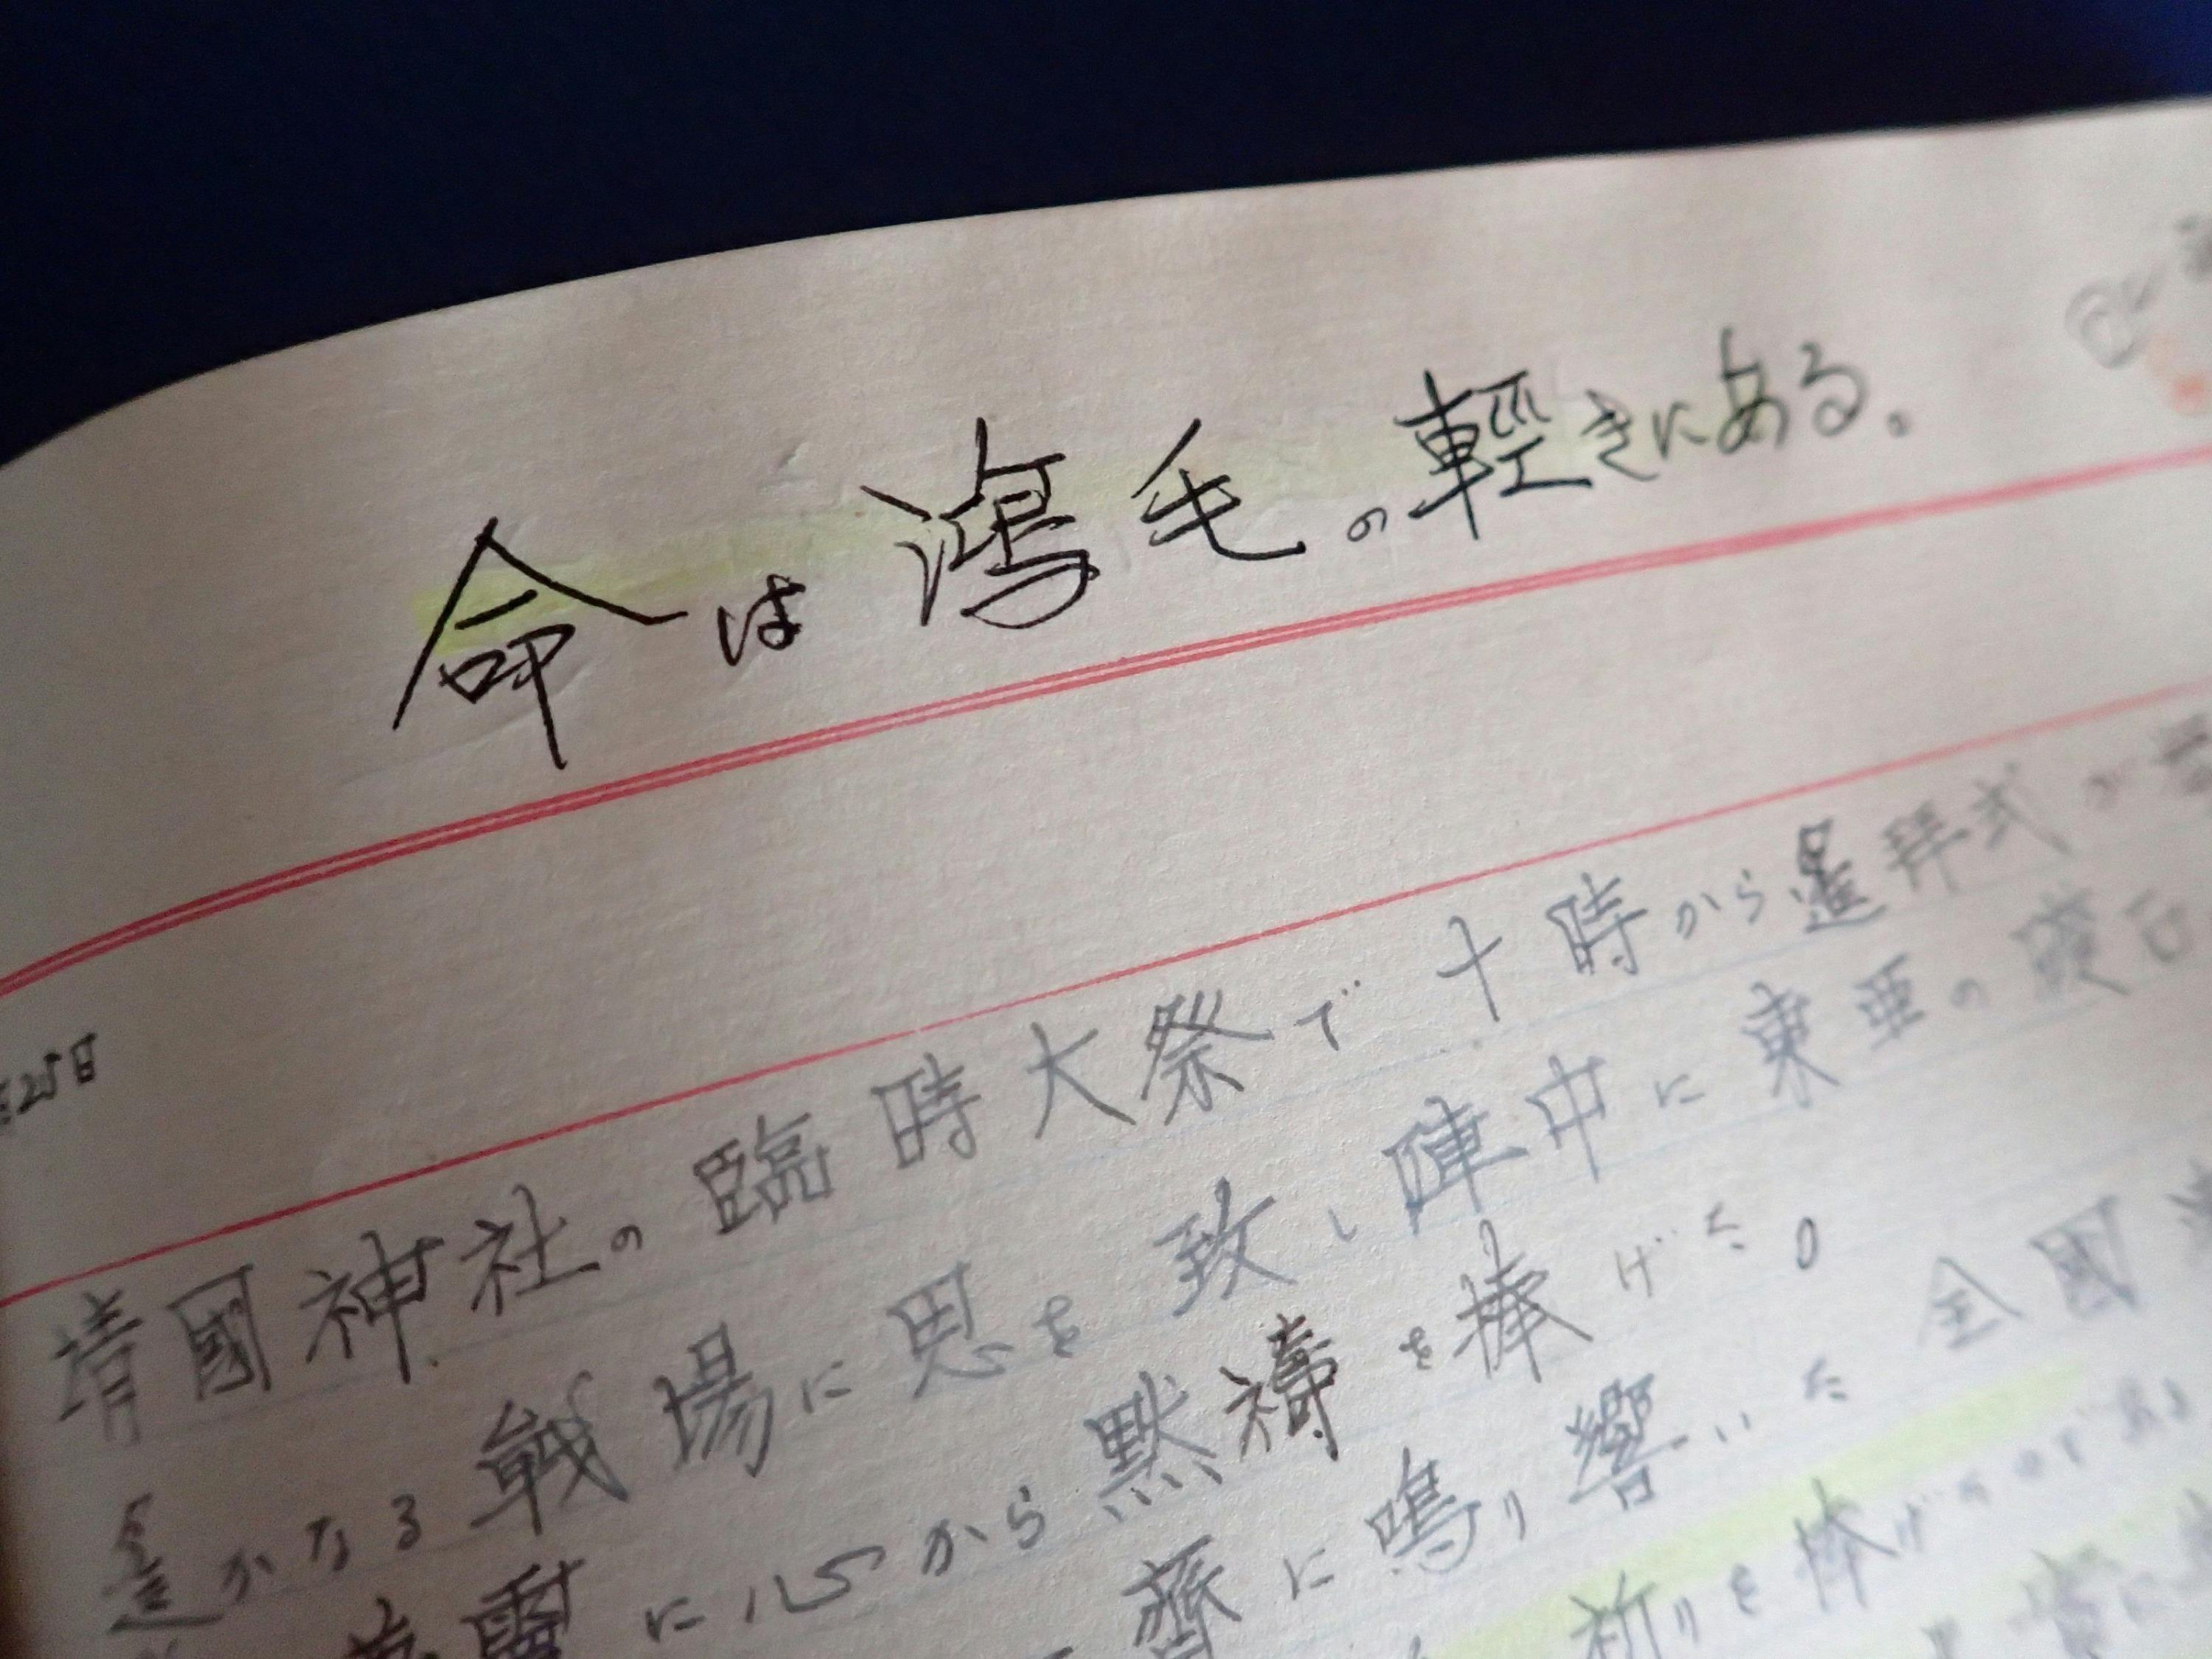 命は鴻毛の輕きにある。
25日
靖國神社の臨時大祭で十時から遥拝式が
遥かなる戦場に思を致し陣中に東亜の
英靈に心から黙禱を捧げた。全國
齊に鳴り響いた
祈りを捧げ